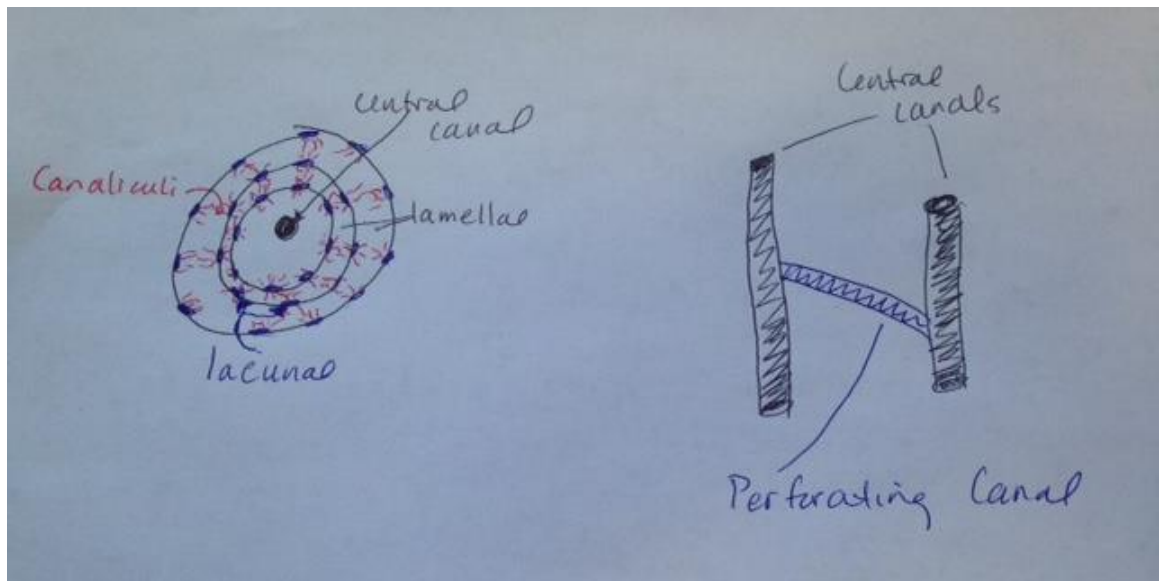 Central
canal
Canaliculi
lamellae
lacunae
Central
canals
Perforating Canal